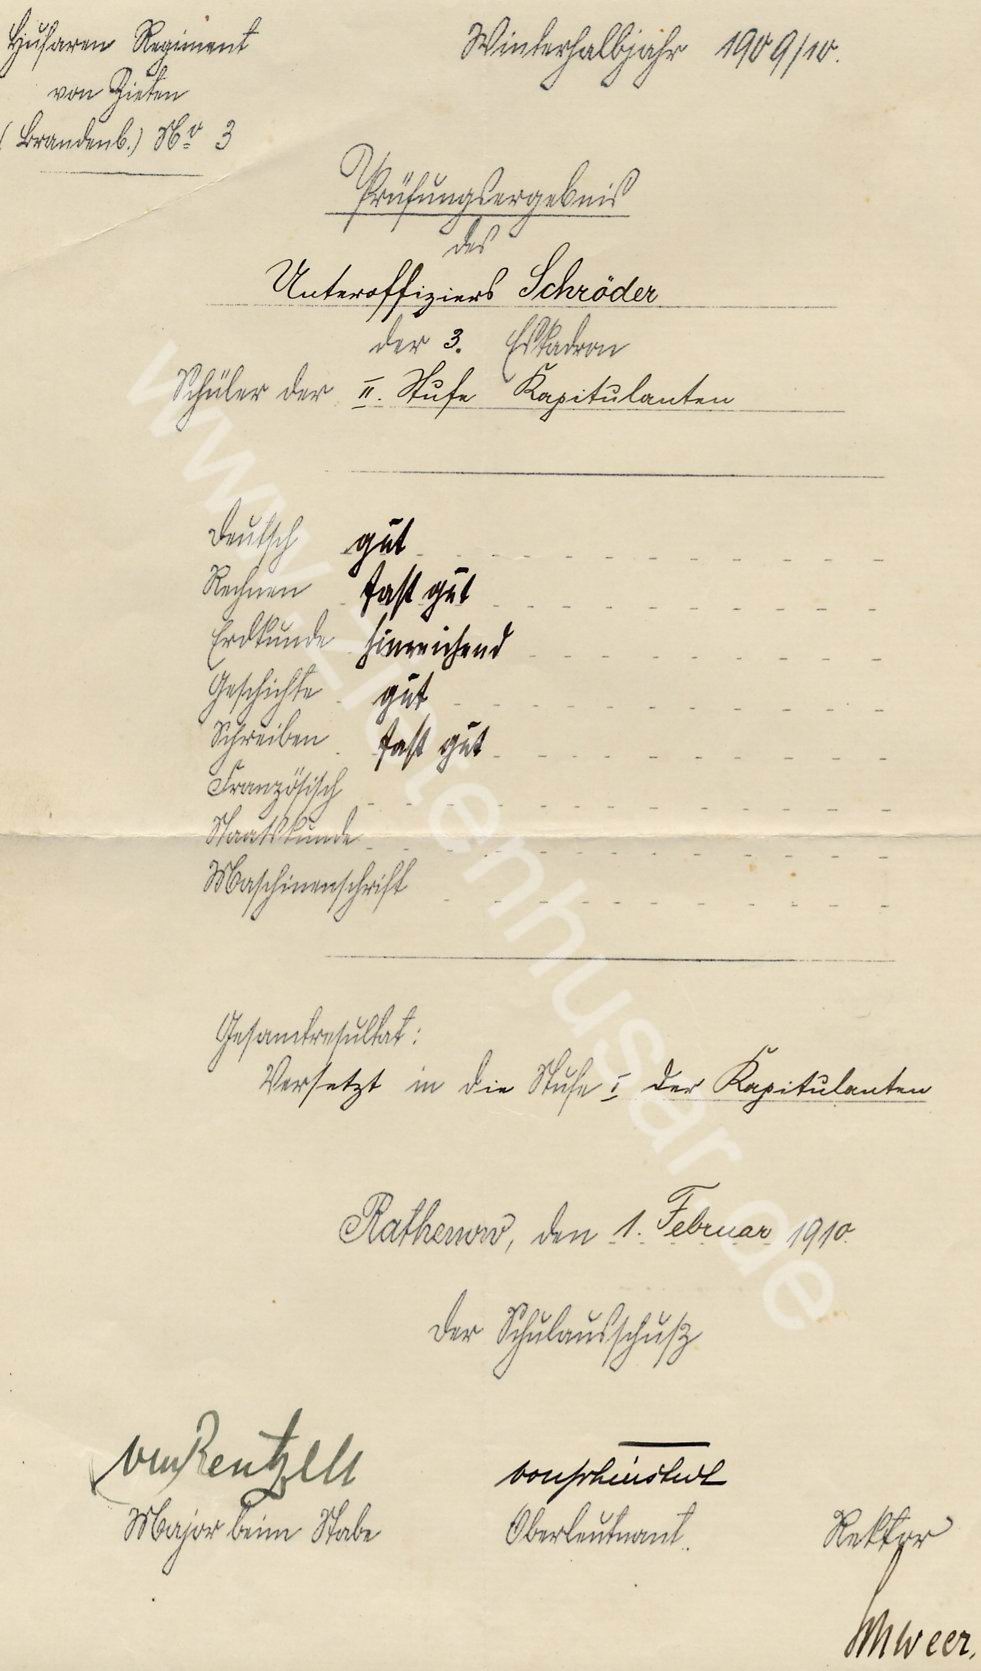 Husaren Regiment
von Zieten
(Brandenb.) No 3
Winterhalbjahr 1909/10.
Prüfungsergebnis
des
Unteroffiziers Schröder
der 3. Eskadron
Schüler der II. Stufe Kapitulanten
Deutsch gut
Rechnen fast gut
Erdkunde hinreichend
Geschichte gut
Schreiben fast gut
Französisch
Staatskunde
Maschinenschrift
Gesamtresultat:
Versetzt in die Stufe I der Kapitulanten
Rathenow, den 1. Februar 1910.
Der Schulausschuß
von Rentzell
Major beim Stabe
von
Oberleutnant.
Rektor
www.zietenhusar.de